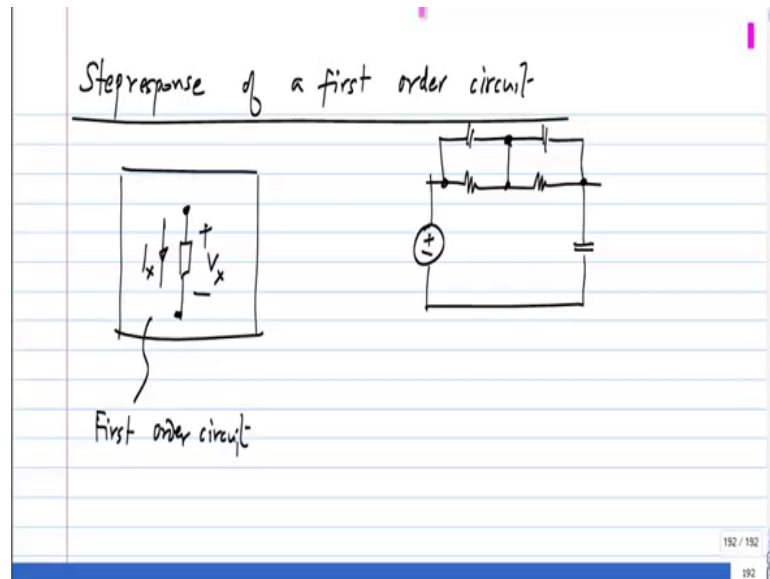 Step response of a first order circuit
+
I_x
V_x
−
+
−
First order circuit
192 / 192
192